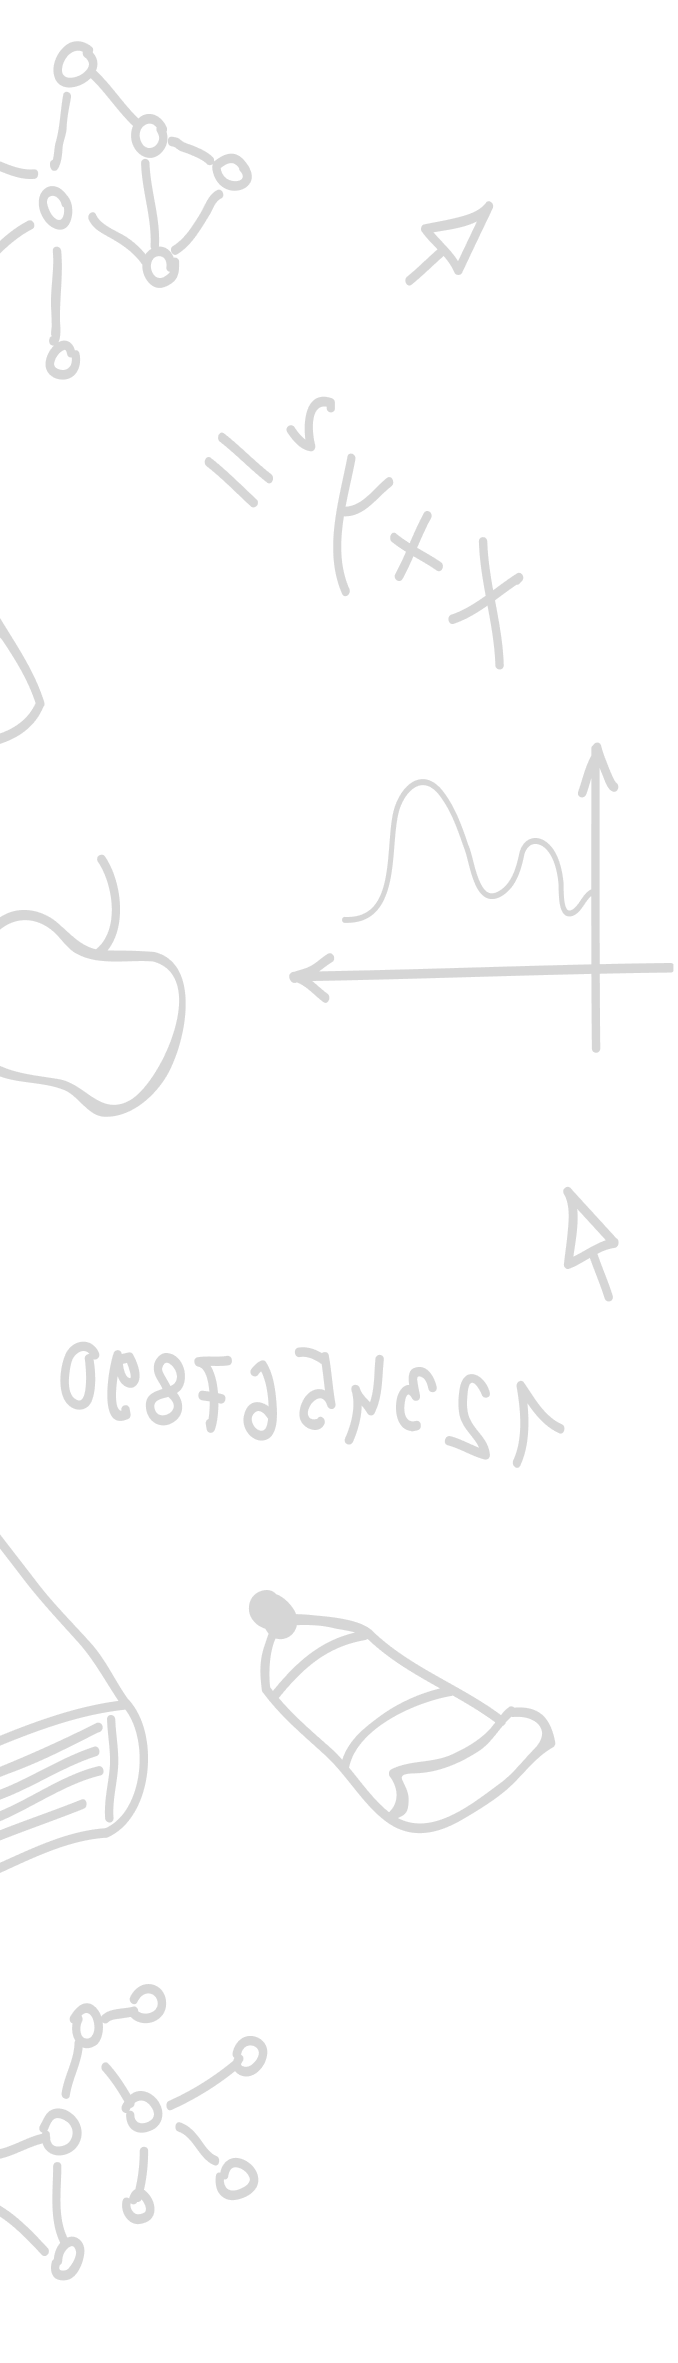 x + y =
1234567890